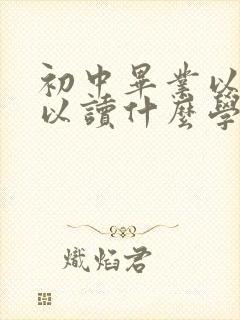 初中畢業以
以讀什麼學
熾焰君